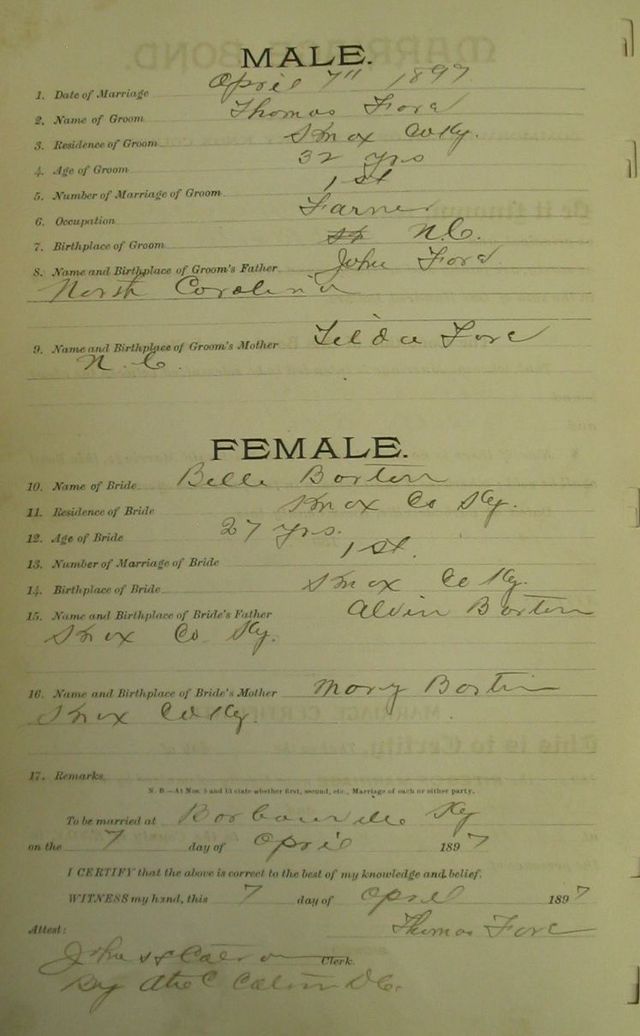 MALE.
1. Date of Marriage April 7" 1897
2. Name of Groom Thomas Ford
3. Residence of Groom Knox Co Ky.
4. Age of Groom 32 yrs
5. Number of Marriage of Groom 1st
6. Occupation Farmer
7. Birthplace of Groom N.C.
8. Name and Birthplace of Groom's Father John Ford
North Carolina
9. Name and Birthplace of Groom's Mother Tilda Ford
N.C.
FEMALE.
10. Name of Bride Belle Borton
11. Residence of Bride Knox Co Ky.
12. Age of Bride 27 yrs.
13. Number of Marriage of Bride 1st.
14. Birthplace of Bride Knox Co Ky.
15. Name and Birthplace of Bride's Father Alvin Borton
Knox Co Ky.
16. Name and Birthplace of Bride's Mother Mary Borton
Knox Co Ky.
17. Remarks
N. B.—At Nos. 5 and 13 state whether first, second, etc., Marriage of each or either party.
To be married at Barbourville Ky
on the 7 day of April 1897
I CERTIFY that the above is correct to the best of my knowledge and belief.
WITNESS my hand, this 7 day of April 1897
Thomas Ford
Attest:
John Clerk.
By D.C.